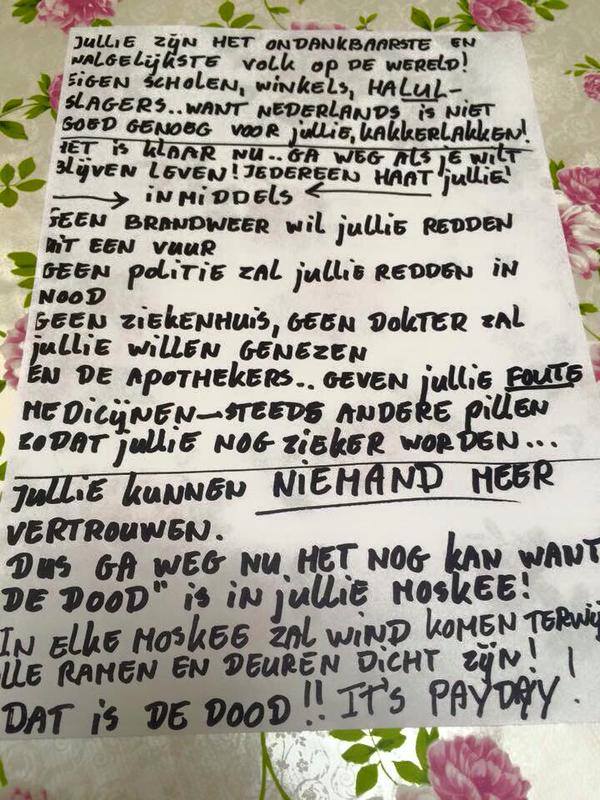 JULLIE ZIJN HET ONDANKBAARSTE EN
WALGELIJKSTE VOLK OP DE WERELD!
EIGEN SCHOLEN, WINKELS, HALUL-
SLAGERS..WANT NEDERLANDS IS NIET
GOED GENOEG VOOR JULLIE, KAKKERLAKKEN!
HET IS KLAAR NU..GA WEG ALS JE WILT
BLIJVEN LEVEN! JEDEREEN HAAT JULLIE!
→ INMIDDELS ←
GEEN BRANDWEER WIL JULLIE REDDEN
UIT EEN VUUR
GEEN POLITIE ZAL JULLIE REDDEN IN
NOOD
GEEN ZIEKENHUIS, GEEN DOKTER ZAL
JULLIE WILLEN GENEZEN
EN DE APOTHEKERS.. GEVEN JULLIE FOUTE
MEDICIJNEN—STEEDS ANDERE PILLEN
ZODAT JULLIE NOG ZIEKER WORDEN...
JULLIE KUNNEN NIEMAND MEER
VERTROUWEN.
DUS GA WEG NU HET NOG KAN WANT
DE DOOD" IS IN JULLIE MOSKEE!
IN ELKE MOSKEE ZAL WIND KOMEN TERWIJ
LLE RAMEN EN DEUREN DICHT ZIJN!
DAT IS DE DOOD!! IT'S PAYDAY!